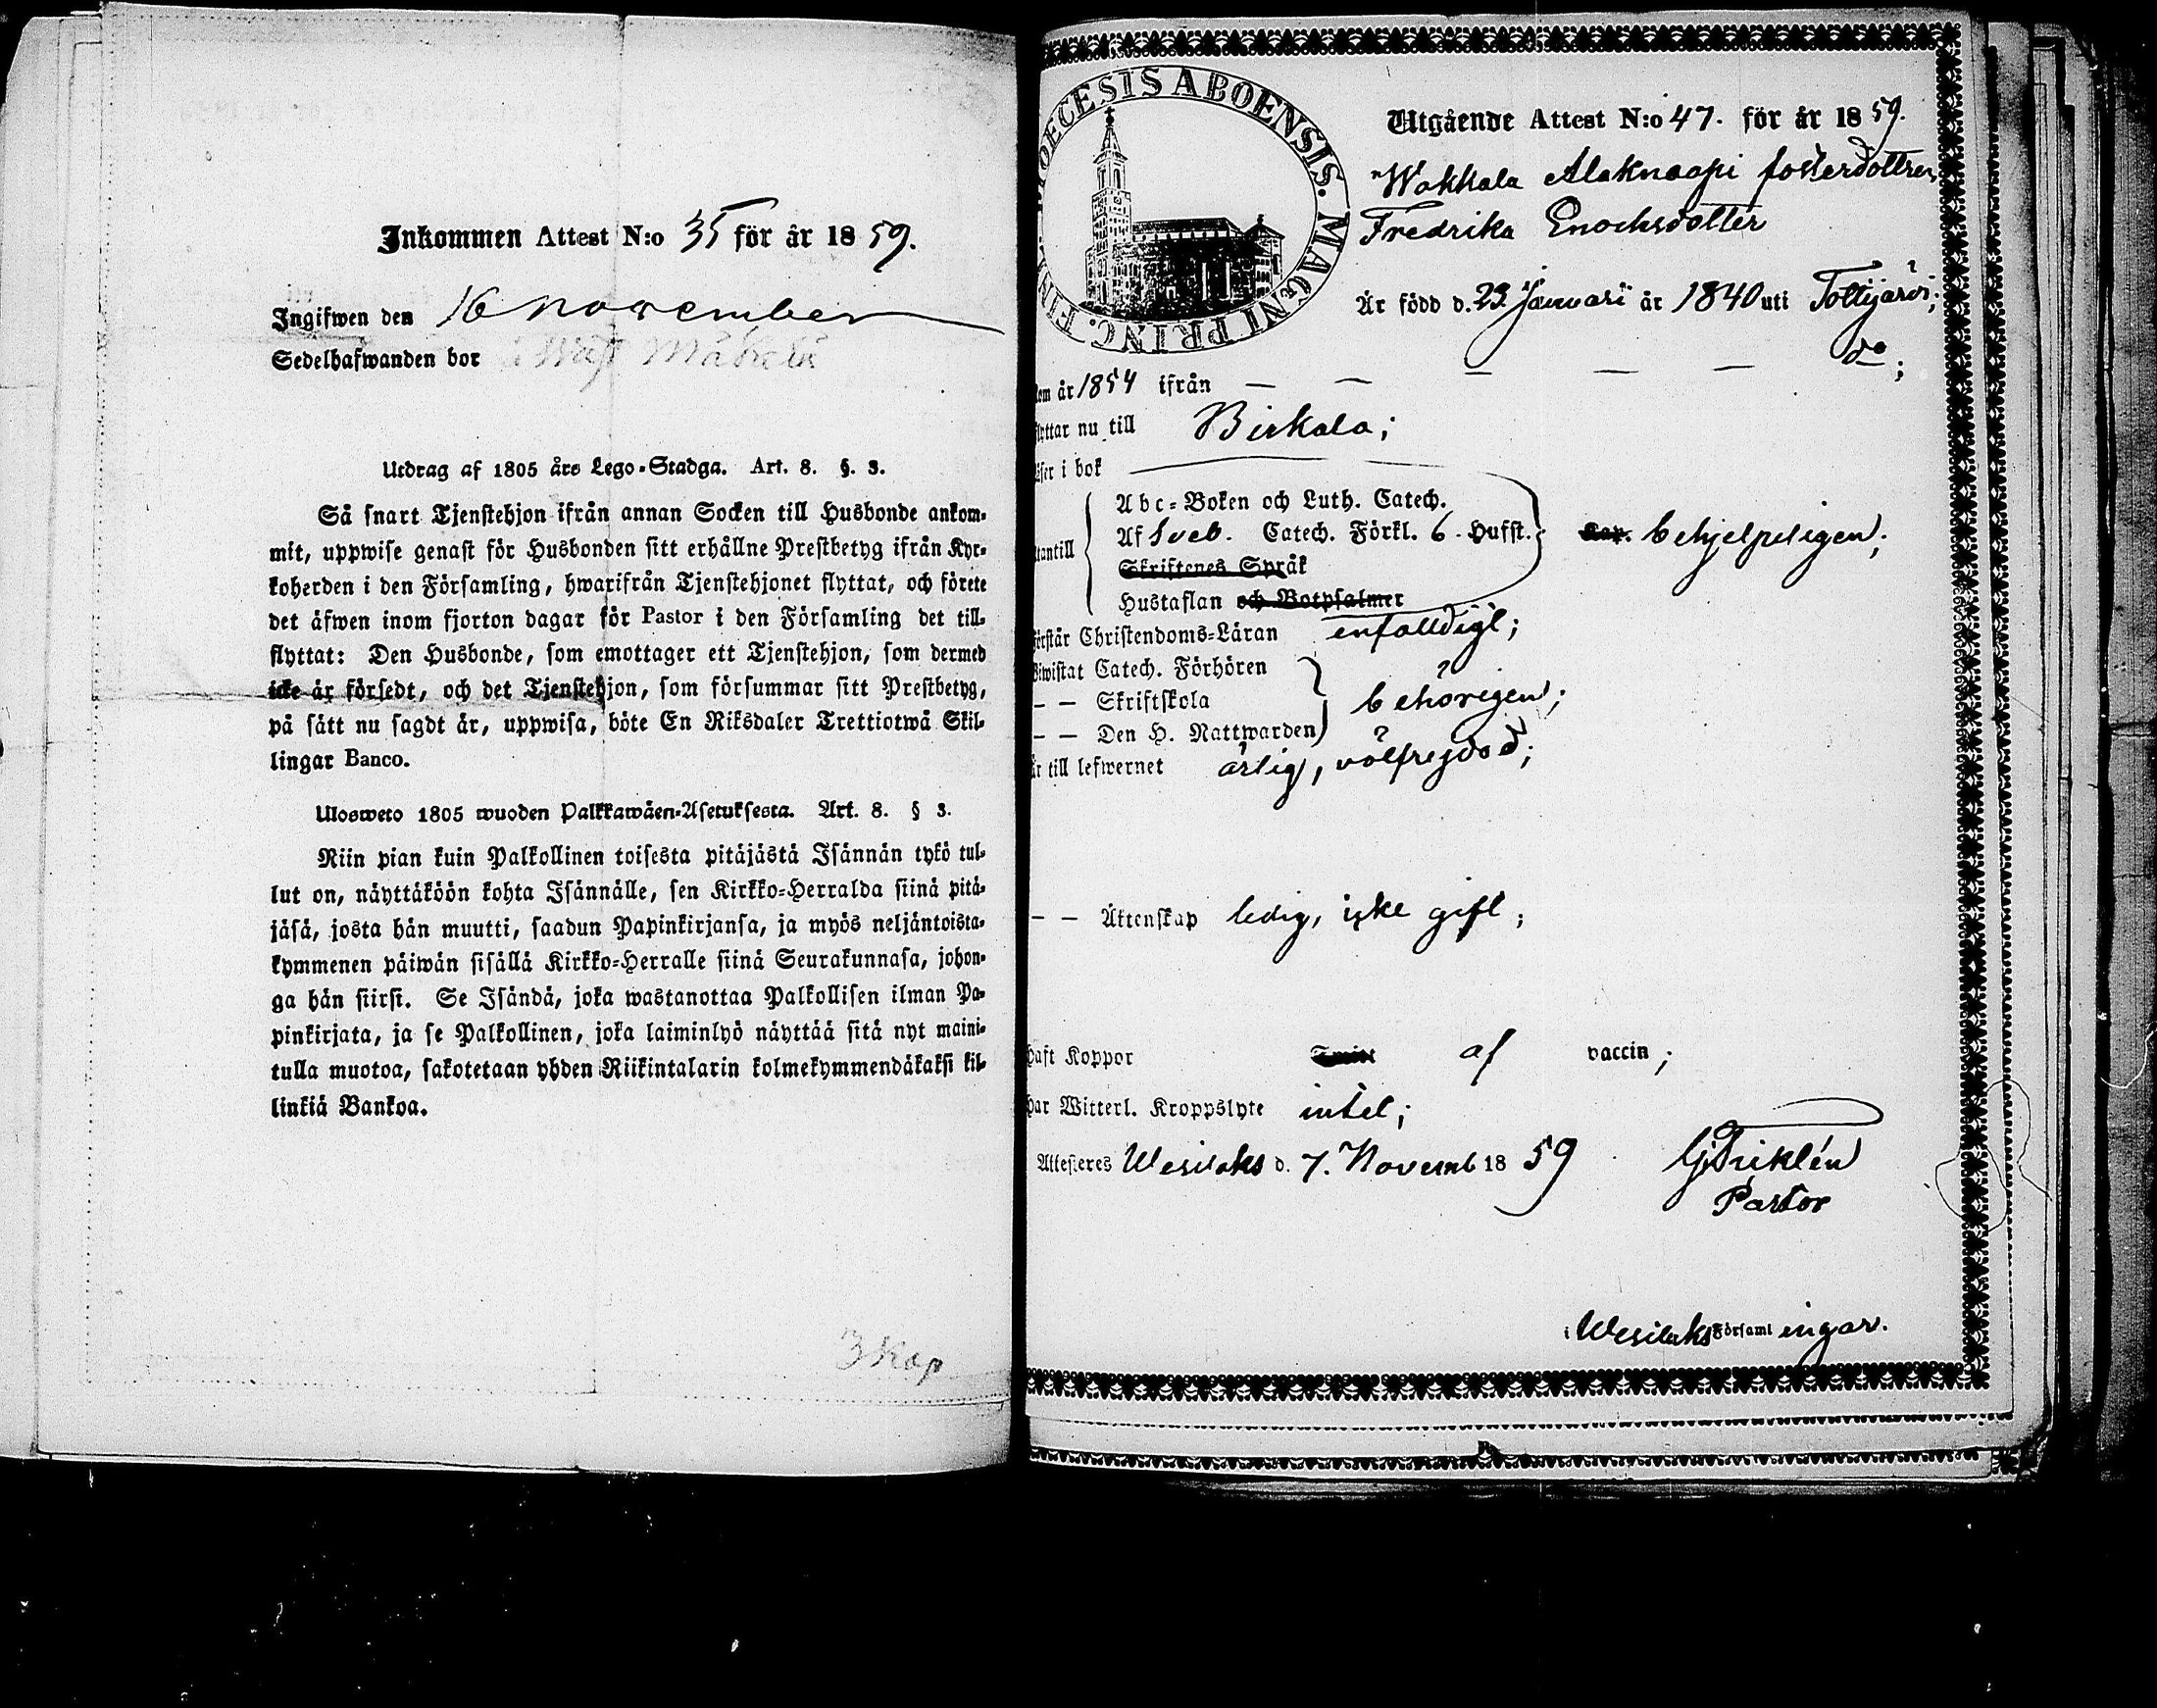 Inkommen Attest N:o 35 för år 1859.
Ingifwen den 16 november
Sedelhafwanden bor i Mäkelä
Utdrag af 1805 års Lego-Stadga. Art. 8. §. 3.
Så snart Tjenstehjon ifrån annan Socken till Husbonde ankom-
mit, uppwise genast för Husbonden sitt erhållne Prestbetyg ifrån Kyr-
koherden i den Församling, hwarifrån Tjenstehjonet flyttat, och förete
det äfwen inom fjorton dagar för Pastor i den Församling det till-
flyttat: Den Husbonde, som emottager ett Tjenstehjon, som dermed
icke är försedt, och det Tjenstehjon, som försummar sitt Prestbetyg,
på sätt nu sagdt är, uppwisa, böte En Riksdaler Trettiotwå Skil-
lingar Banco.
Ulosweto 1805 wuoden Palkkawäen-Asetuksesta. Art. 8. § 3.
Niin pian kuin Palkollinen toisesta pitäjästä Isännän tykö tul-
lut on, näyttäköön kohta Isännälle, sen Kirkko-Herralda siinä pitä-
jäsä, josta hän muutti, saadun Papinkirjansa, ja myös neljäntoista-
kymmenen päiwän sisällä Kirkko-Herralle siinä Seurakunnasa, johon-
ga hän siirsi. Se Isändä, joka wastanottaa Palkollisen ilman Pa-
pinkirjata, ja se Palkollinen, joka laiminlyö näyttää sitä nyt maini-
tulla muotoa, sakotetaan yhden Riikintalarin kolmekymmendäkaksi kil-
linkiä Bankoa.
3 kop
DIOECESIS ABOENSIS. MAGNI PRINC. FINL.
Utgående Attest N:o 47. för år 1859.
Wakkala Alaknaapi fosterdottren,
Fredrika Enochsdotter
Är född d. 23. Januari år 1840 uti Tottijärvi;
Kom år 1854 ifrån — — — — — do;
flyttar nu till Birkala;
Läser i bok
Utantill
Abc-Boken och Luth. Catech.
Af Sveb. Catech. Förkl. 6. Hufst. Kap. behjelpeligen;
Skriftenes Språk
Hustaflan och Botpsalmer
Förstår Christendoms-Läran enfalldigt;
Biwistat Catech. Förhören
— — Skriftskola behörigen;
— — Den H. Nattwarden
Är till lefwernet ärlig, välfrejdad;
— — Äktenskap ledig, icke gift;
Haft Koppor af vaccin;
Har Witterl. Kroppslyte intet;
Attesteres Wesilaks d. 7. Novemb 1859
Pastor
i Wesilaks Församlingar.